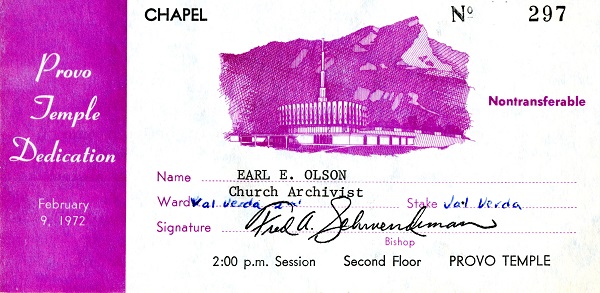 CHAPEL
No 297
Provo
Temple
Dedication
February
9, 1972
Nontransferable
Name EARL E. OLSON
Church Archivist
Ward Val Verda Stake Val Verda
Signature Fred A. Schwendiman
Bishop
2:00 p.m. Session Second Floor PROVO TEMPLE